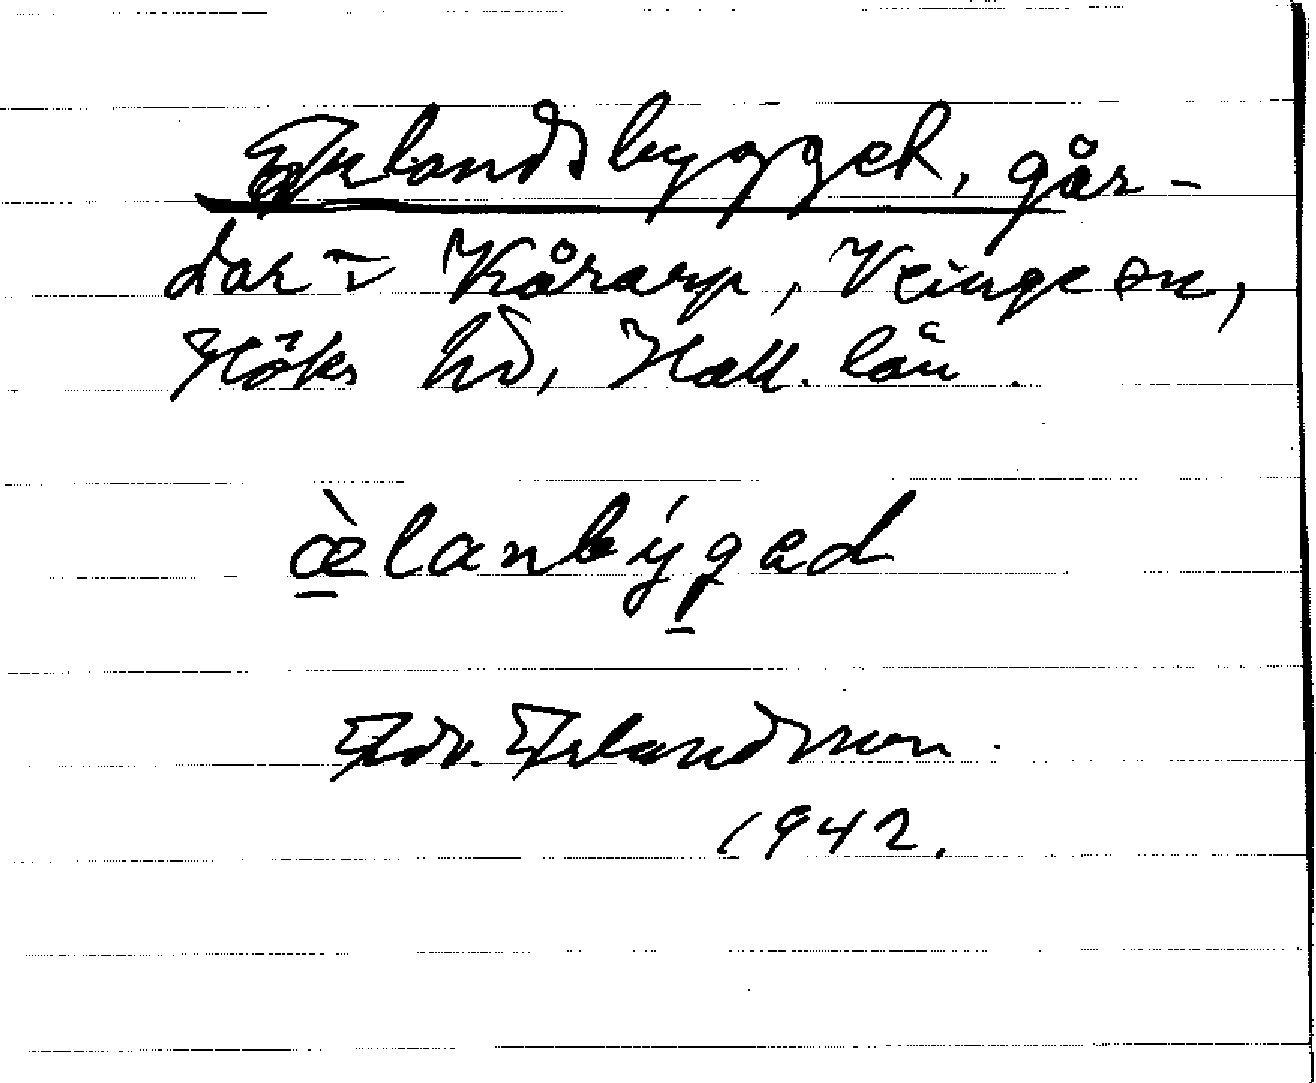 Erlandsbygget, går-
dar i Kårarp, Veinge sn,
Höks hd, Hall. län.
æ̀lanbýgəd
Edv. Erlandsson.
1942.